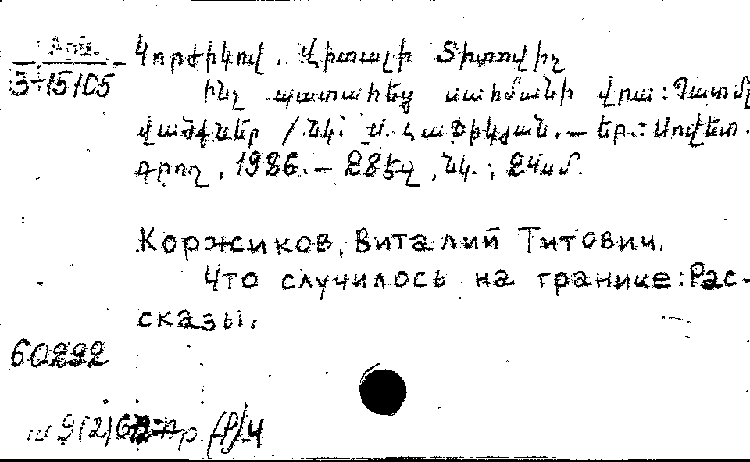 Հող.
3-15105
Կորժիկով, Վիտալի Տիտովիչ
Ինչ պատահեց սահմանի վրա: Պատմ
վածքներ / Նկ.՝ Մ. — Եր.: Սովետ.
գրող, 1986. — 285 էջ, նկ.; 24 սմ.
Коржиков, Виталий Титович.
Что случилось на границе: Рас-
сказы.
60292